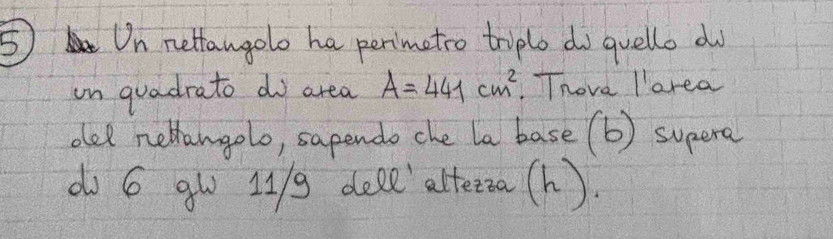 5) Un rettangolo ha perimetro triplo di quello di
un quadrato di area A = 441 cm². Trova l'area
del rettangolo, sapendo che la base (b) supera
di 6 gli 11/9 dell'altezza (h).